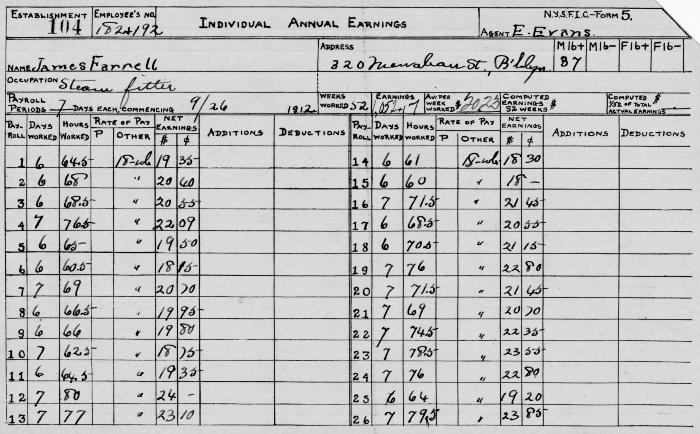 ESTABLISHMENT 104 EMPLOYEE'S NO. 182+192 INDIVIDUAL ANNUAL EARNINGS N.Y.S.F.I.C.-FORM 5.
AGENT E. Evans.
NAME James Farrell ADDRESS 320 St., B'klyn. M16+ M16- F16+ F16-
87
OCCUPATION Steam fitter
PAYROLL PERIODS 7 DAYS EACH, COMMENCING 9/26 1912. WEEKS WORKED 52 EARNINGS 1,052.17 AV. PER WEEK WORKED $ 2023 COMPUTED EARNINGS 52 WEEKS $ COMPUTED 1/52 OF TOTAL ACTUAL EARNINGS $
PAY-ROLL DAYS WORKED HOURS WORKED RATE OF PAY P OTHER NET EARNINGS $ ¢ ADDITIONS DEDUCTIONS PAY-ROLL DAYS WORKED HOURS WORKED RATE OF PAY P OTHER NET EARNINGS $ ¢ ADDITIONS DEDUCTIONS
1 6 64.5 18-wk 19 35 14 6 61 18-wk 18 30
2 6 68 " 20 40 15 6 60 " 18 -
3 6 68.5 " 20 55 16 7 71.5 " 21 45
4 7 76.5 " 22 09 17 6 68.5 " 20 55
5 6 65- " 19 50 18 6 70.5 " 21 15
6 6 60.5 " 18 15 19 7 76 " 22 80
7 7 69 " 20 70 20 7 71.5 " 21 45
8 6 66.5 " 19 95 21 7 69 " 20 70
9 6 66 " 19 80 22 7 74.5 " 22 35
10 7 62.5 " 18 75 23 7 78.5 " 23 55
11 6 64.5 " 19 35 24 7 76 " 22 80
12 7 80 " 24 - 25 6 64 " 19 20
13 7 77 " 23 10 26 7 79.5 " 23 85